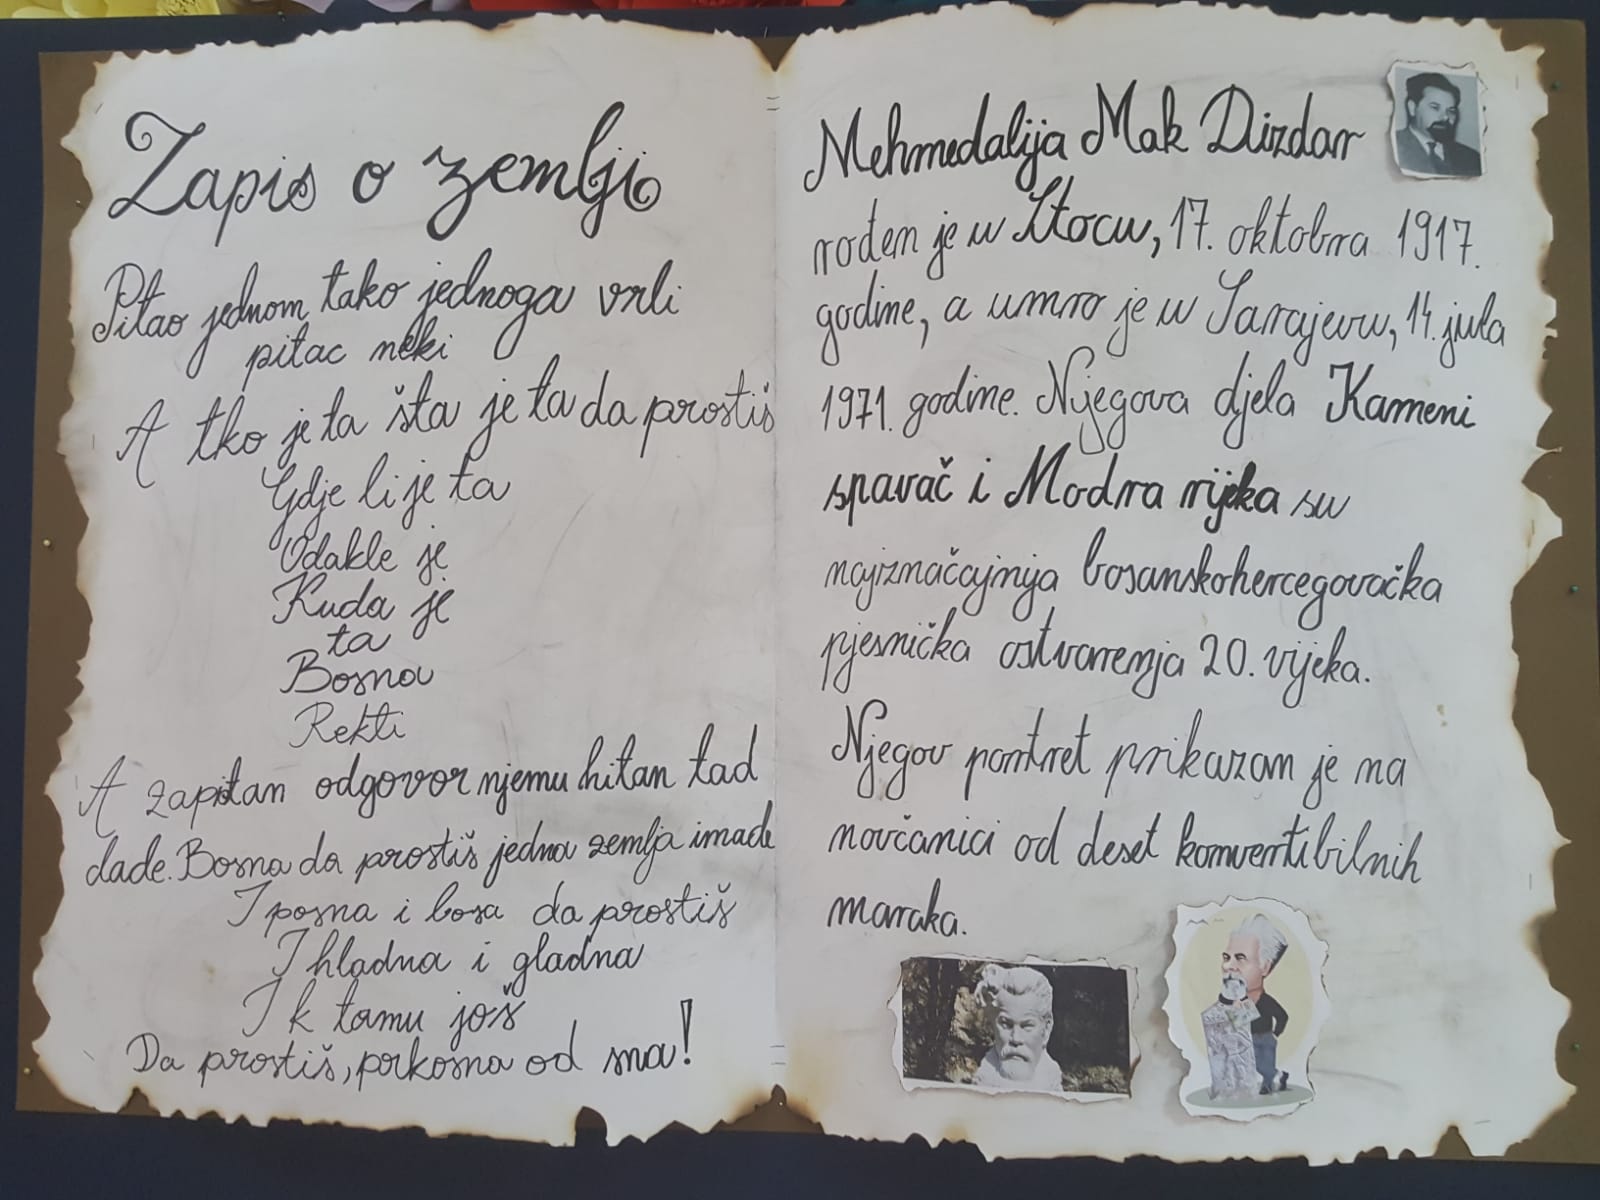 Zapis o zemlji
Pitao jednom tako jednoga vrli
pitac neki
A tko je ta šta je ta da prostiš
Gdje li je ta
Odakle je
Kuda je
ta
Bosna
Rekti
A zapitan odgovor njemu hitan tad
dade. Bosna da prostiš jedna zemlja imade
I posna i bosa da prostiš
I hladna i gladna
I k tamu još
Da prostiš, prkosna od sna!
Mehmedalija Mak Dizdar
rođen je u Stocu, 17. oktobra 1917.
godine, a umro je u Sarajevu, 14. jula
1971. godine. Njegova djela Kameni
spavač i Modra rijeka su
najiznačajnija bosanskohercegovačka
pjesnička ostvarenja 20. vijeka.
Njegov portret prikazan je na
novčanici od deset konvertibilnih
maraka.